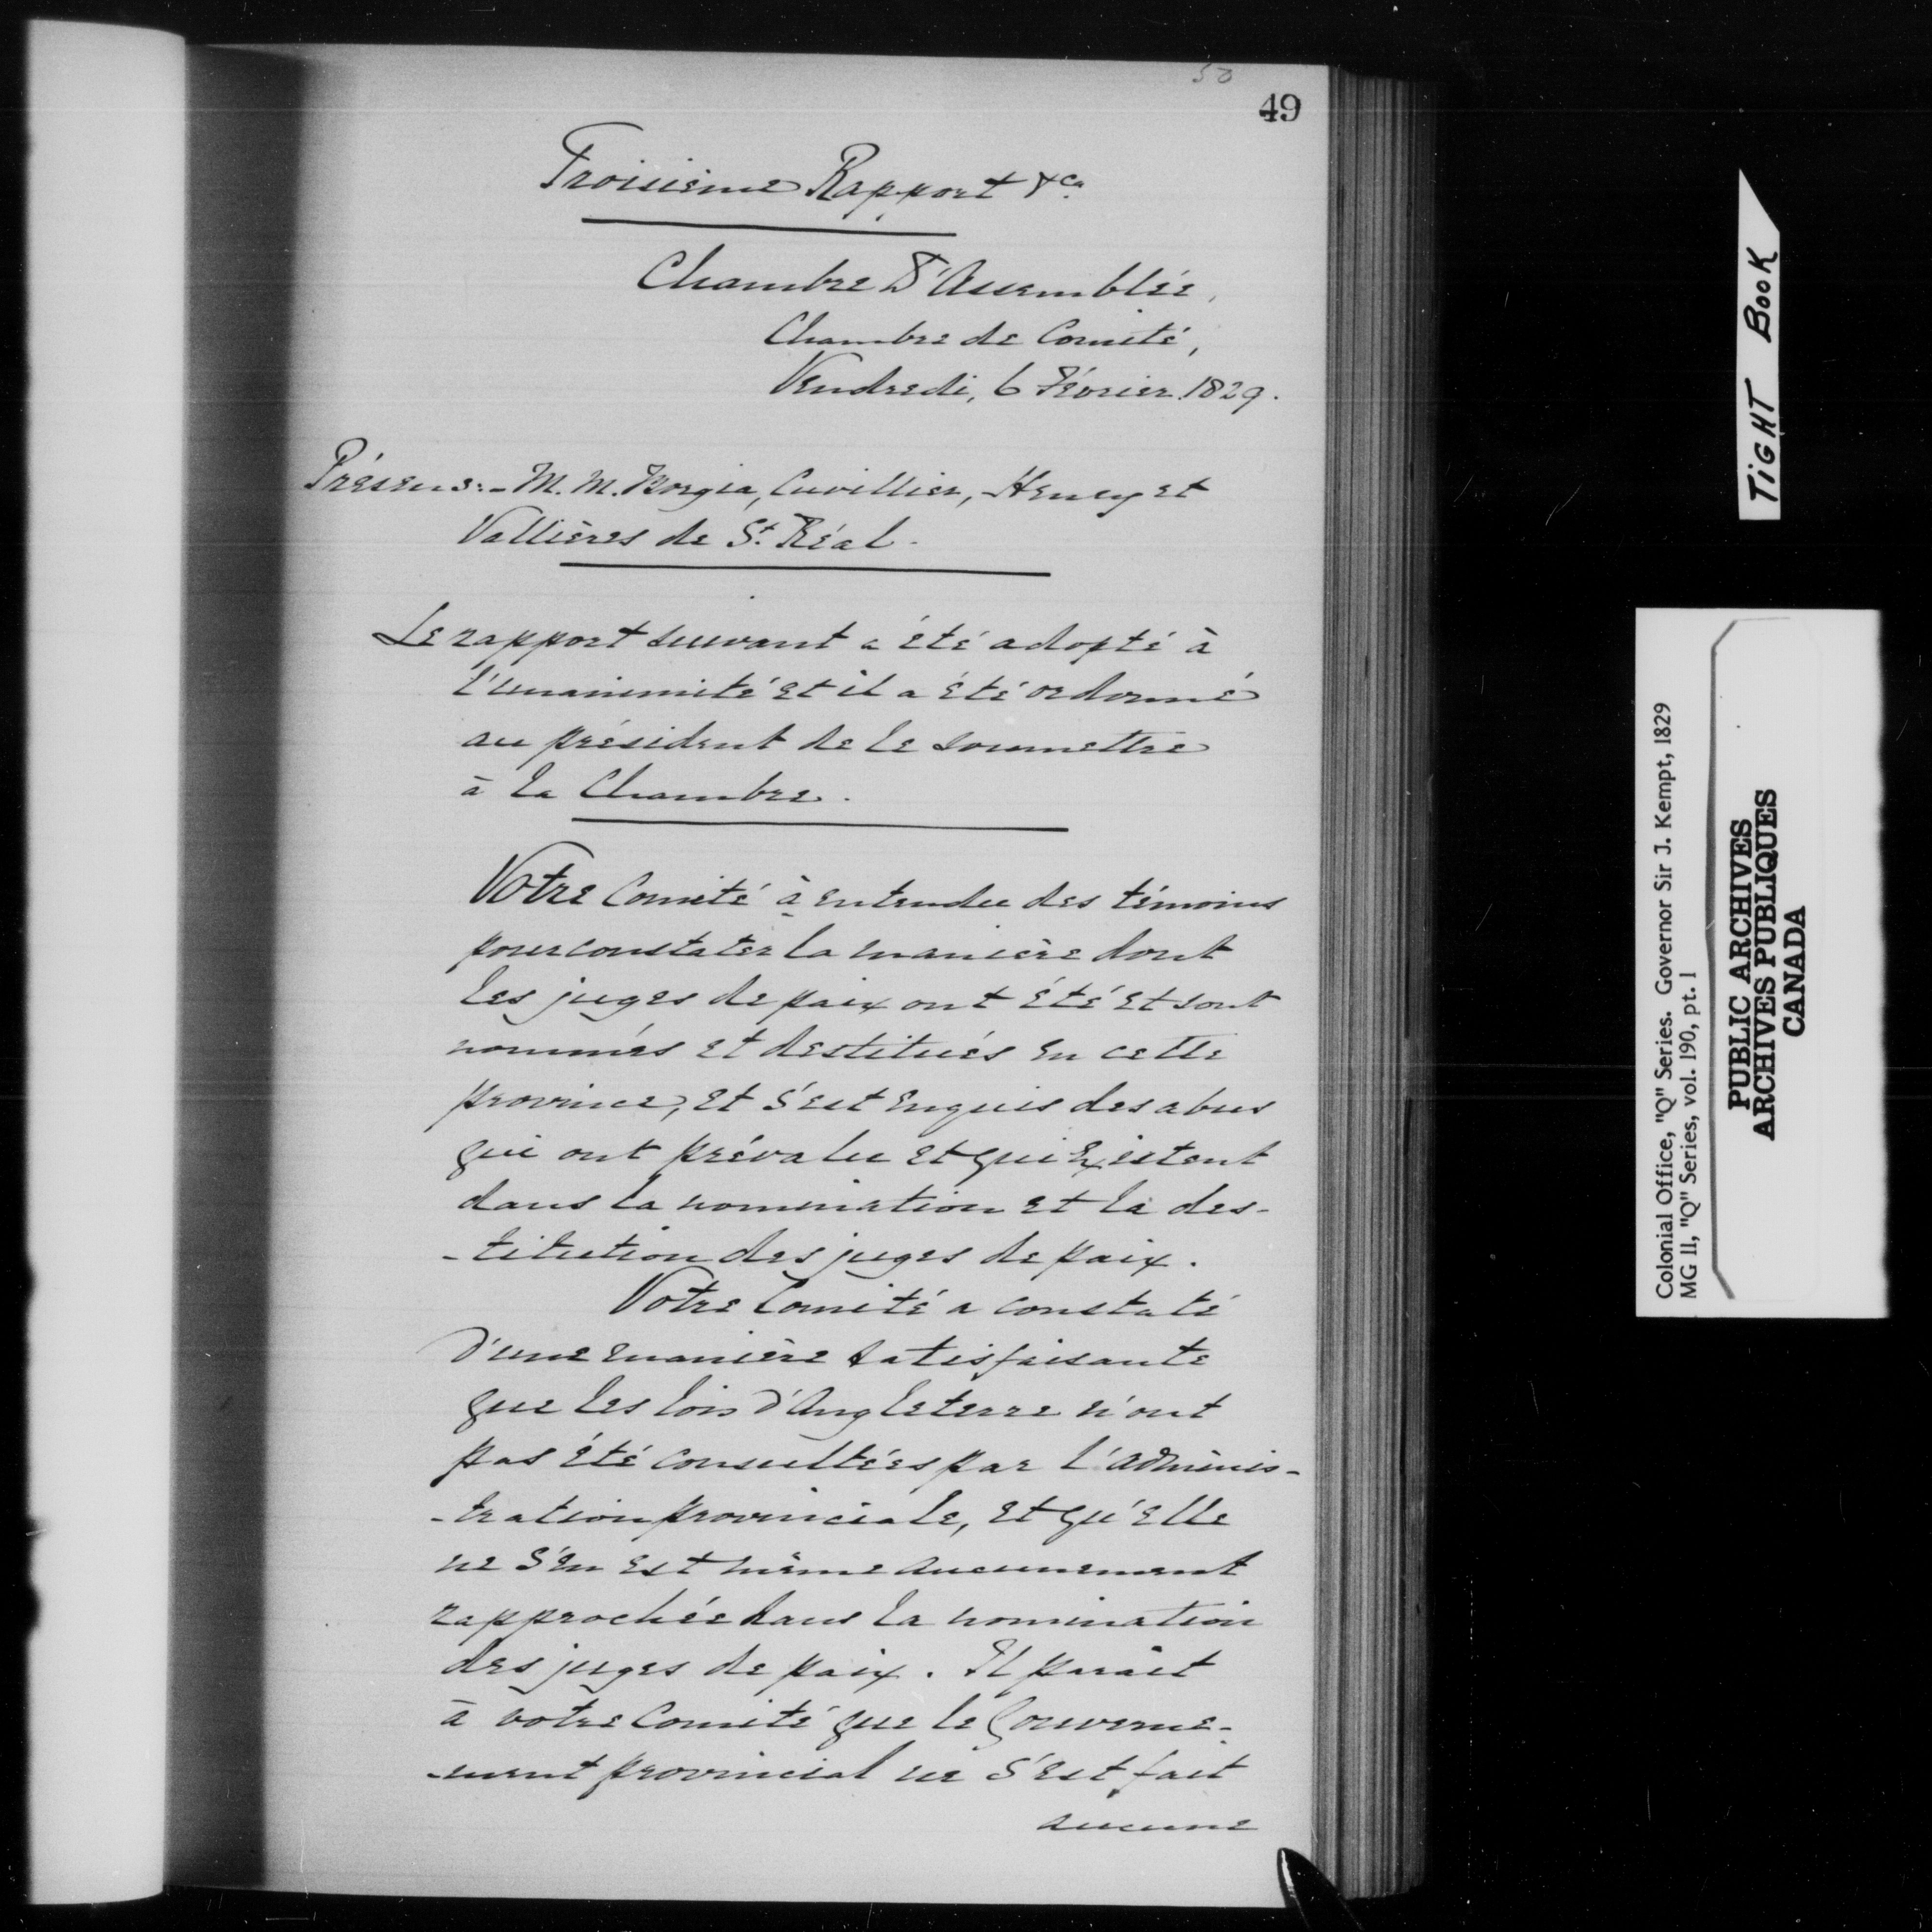 50
49
Troisième Rapport &ca
Chambre D'Assemblée,
Chambre de Comité,
Vendredi, 6 Février 1829.
Présens:- M. M. Borgia, Cuvillier, Heney et
Vallières de St. Réal.
Le rapport suivant a été adopté à
l'unanimité et il a été ordonné
au président de le soumettre
à la Chambre.
Votre Comité à entendu des témoins
pour constater la manière dont
les juges de paix ont été et sont
nommés et destitués en cette
province, et s'est enquis des abus
qui ont prévalu et qui existent
dans la nomination et la des-
-titution des juges de paix.
Votre Comité a constaté
d'une manière satisfaisante
que les lois d'Angleterre n'ont
pas été consultées par l'adminis-
-tration provinciale, et qu'elle
ne s'en est même aucunement
rapprochée dans la nomination
des juges de paix. Il paraît
à votre Comité que le Gouverne-
-ment provincial ne s'est fait
aucune
TIGHT BOOK
Colonial Office, "Q" Series. Governor Sir J. Kempt, 1829
MG 11, "Q" Series, vol. 190, pt. 1
PUBLIC ARCHIVES
ARCHIVES PUBLIQUES
CANADA